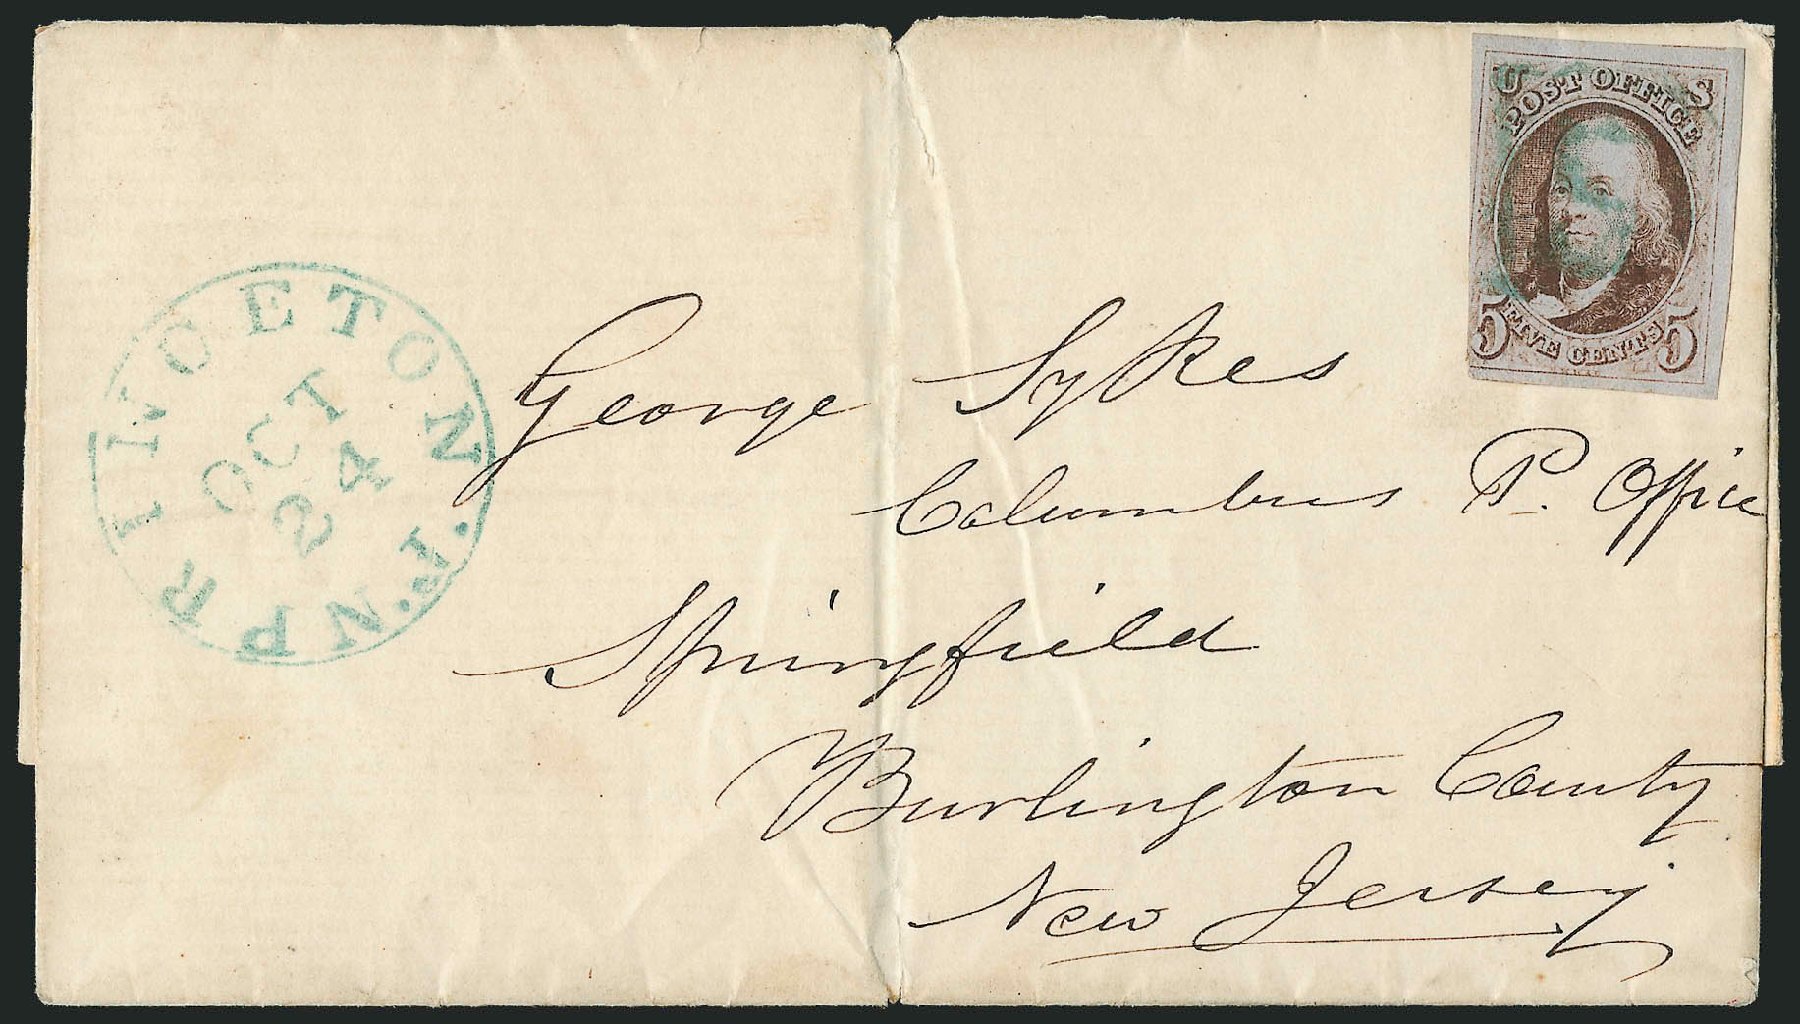 U S
POST OFFICE
5 FIVE CENTS 5
PRINCETON N.J.
OCT
24
George Sykes
Columbus P. Office
Springfield
Burlington County
New Jersey